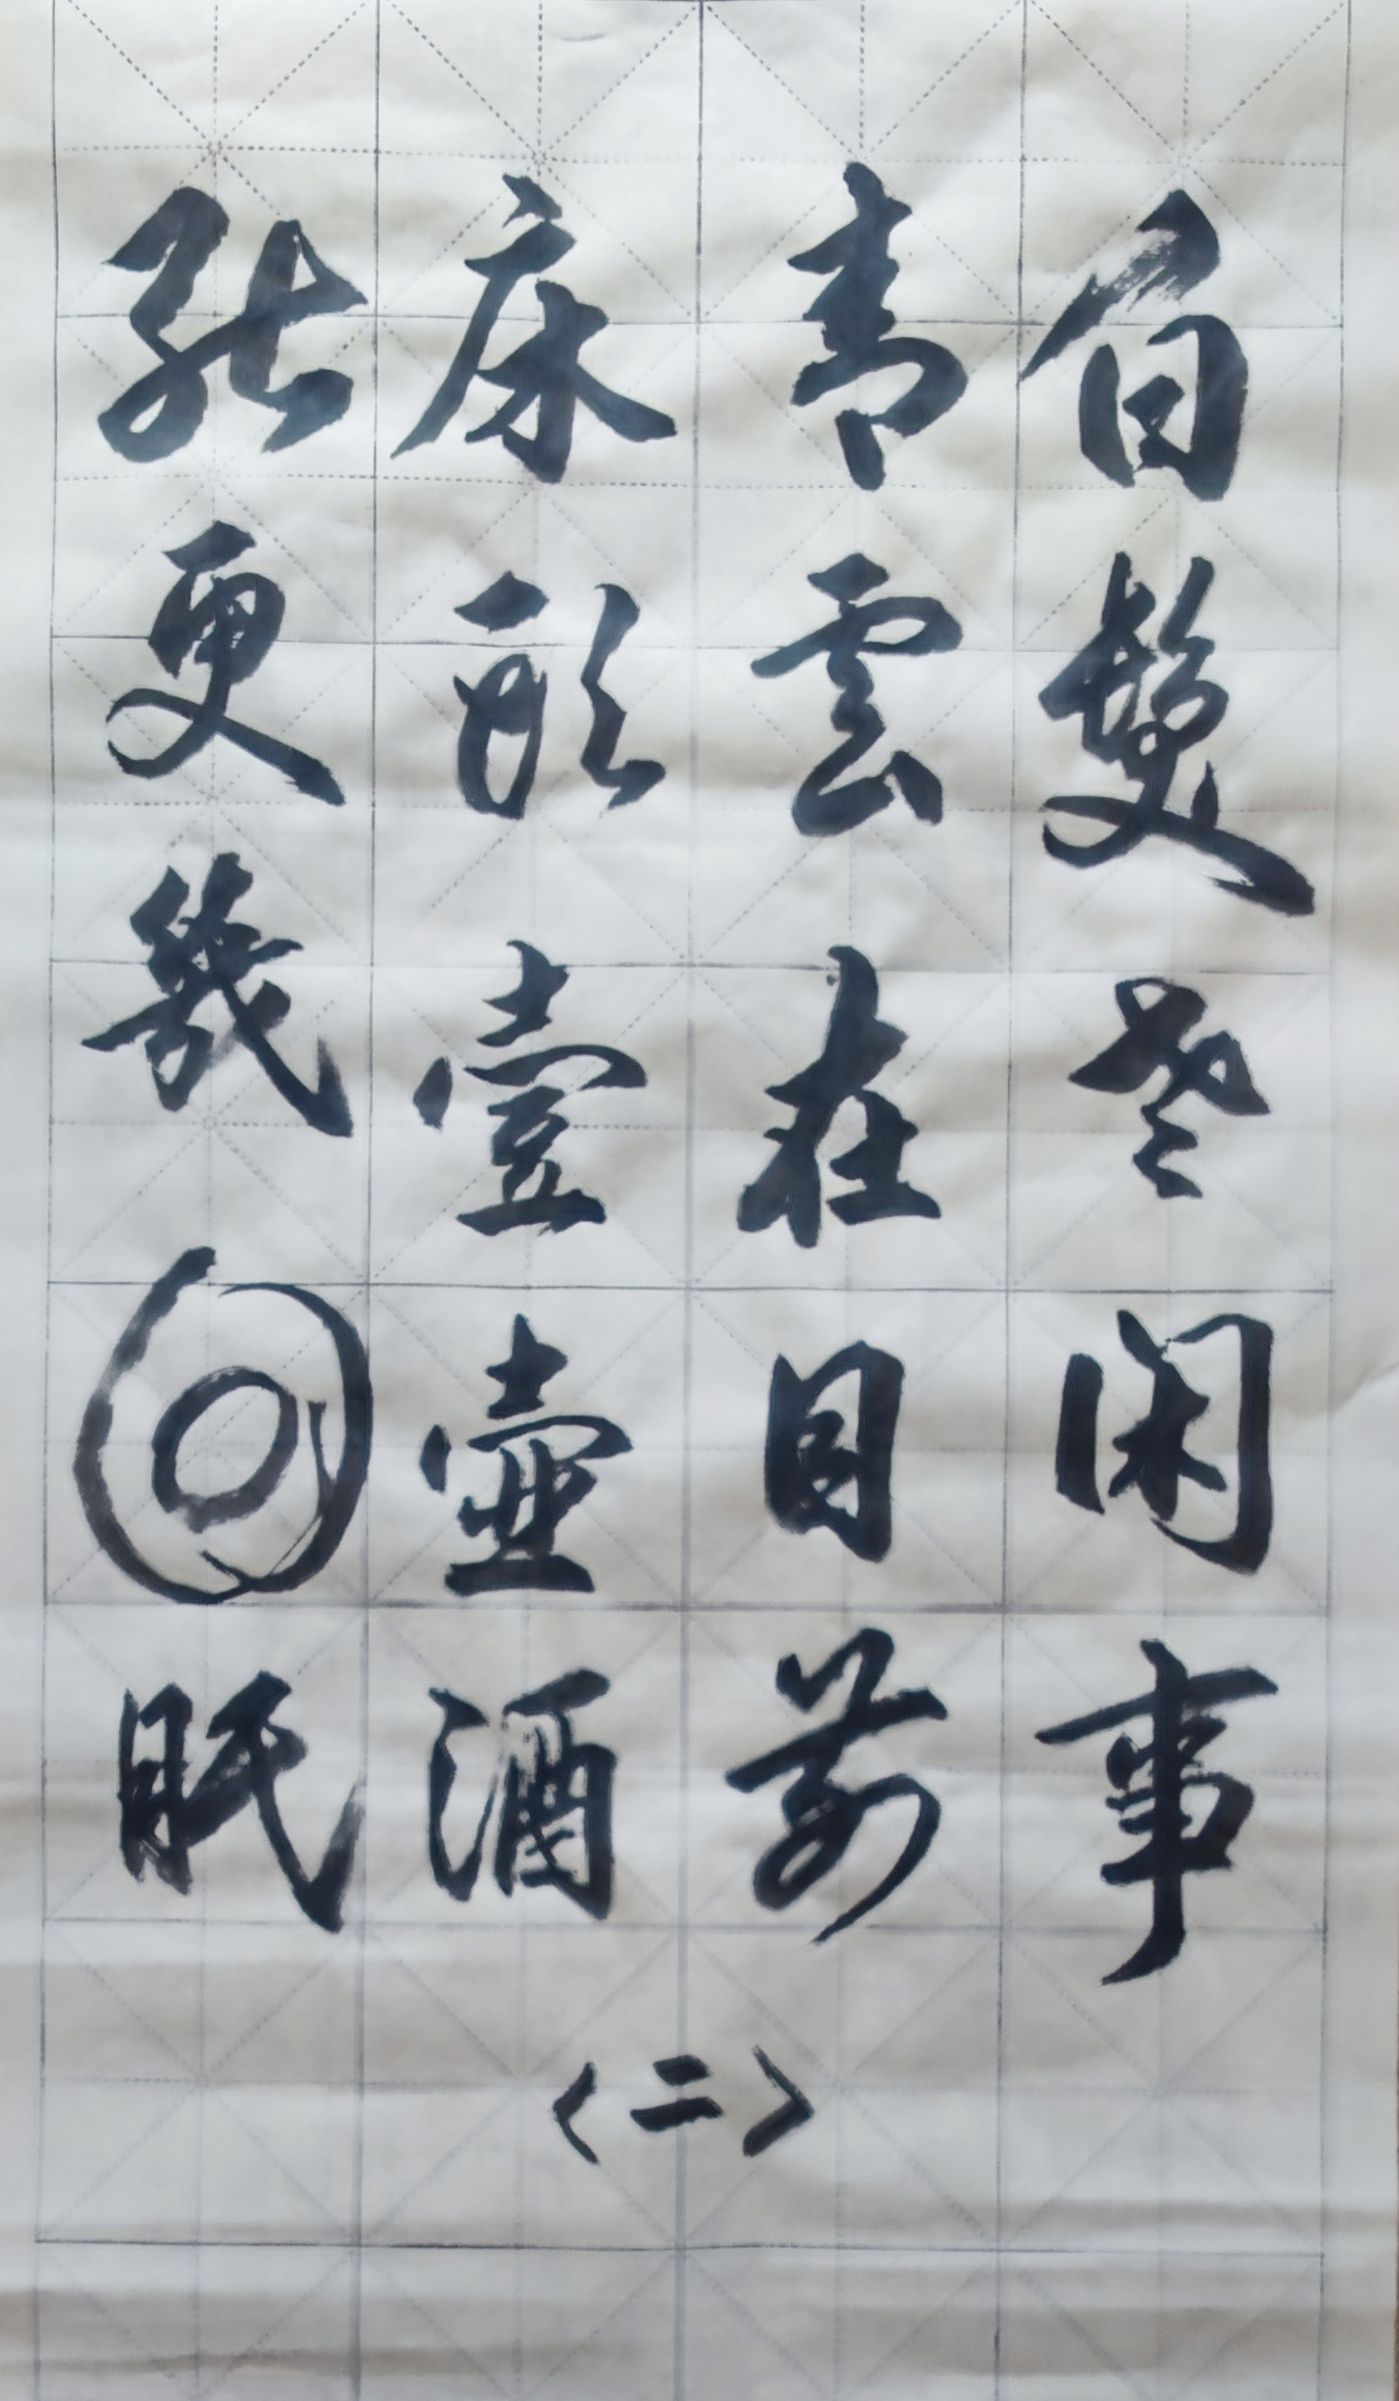 白髮老閑事
青雲在目前
床頭壹壺酒
能更幾回眠
<二>